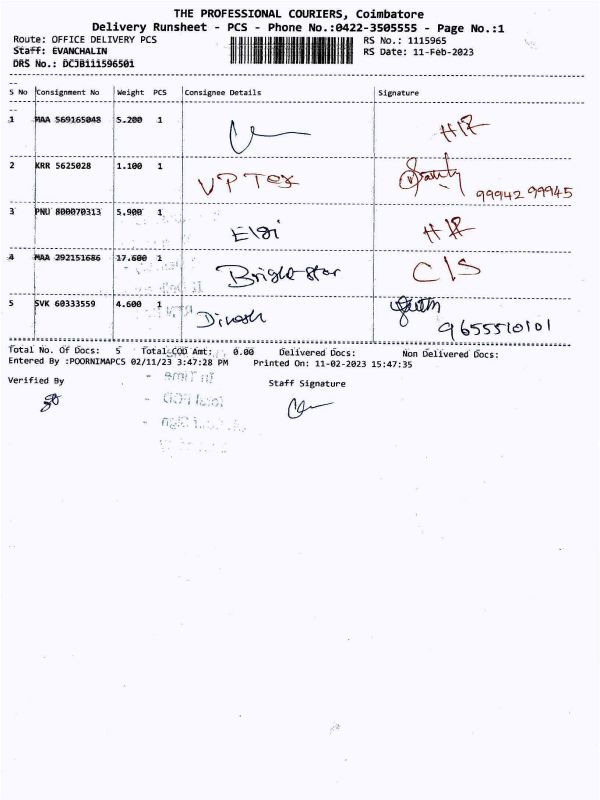 THE PROFESSIONAL COURIERS, Coimbatore
Delivery Runsheet - PCS - Phone No.:0422-3505555 - Page No.:1
Route: OFFICE DELIVERY PCS
RS No.: 1115965
Staff: EVANCHALIN
RS Date: 11-Feb-2023
DRS No.: DCJB111596501
S No Consignment No Weight PCS Consignee Details Signature
1 MAA 569165048 5.200 1
2 KRR 5625028 1.100 1 VP Tex 99942 99945
3 PNU 800070313 5.900 1 Elgi
4 MAA 292151686 17.600 1 Bright star C/S
5 SVK 60333559 4.600 1 Dinesh 9655510101
Total No. Of Docs: 5 Total COD Amt: 0.00 Delivered Docs: Non Delivered Docs:
Entered By :POORNIMAPCS 02/11/23 3:47:28 PM Printed On: 11-02-2023 15:47:35
Verified By Staff Signature